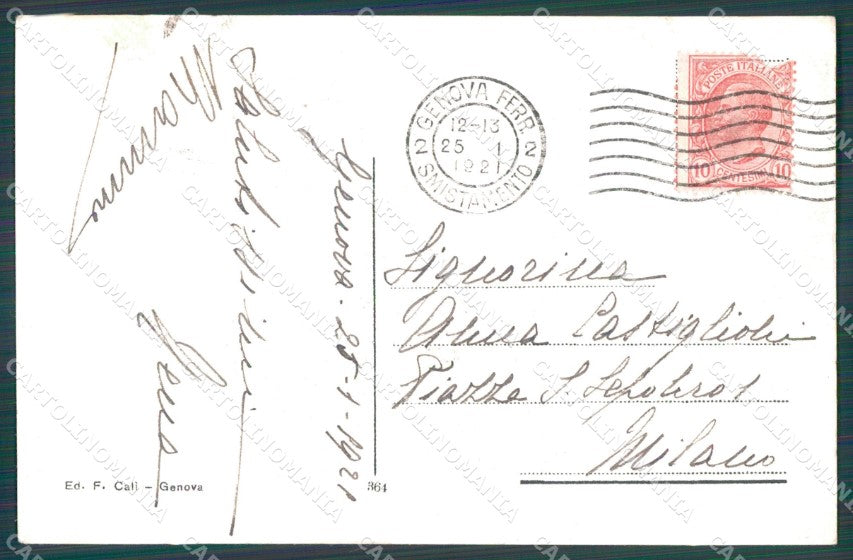 Genova - 25-1-1921
Salutissimi
GENOVA FERR.
12-13
25 1
1921
2 2
SMISTAMENTO
POSTE ITALIANE
10 CENTESIMI 10
Signorina
Anna Castiglioni
Piazza S. Sepolcro 1
Milano
Ed. F. Calì - Genova
364
CARTOLINOMANIA